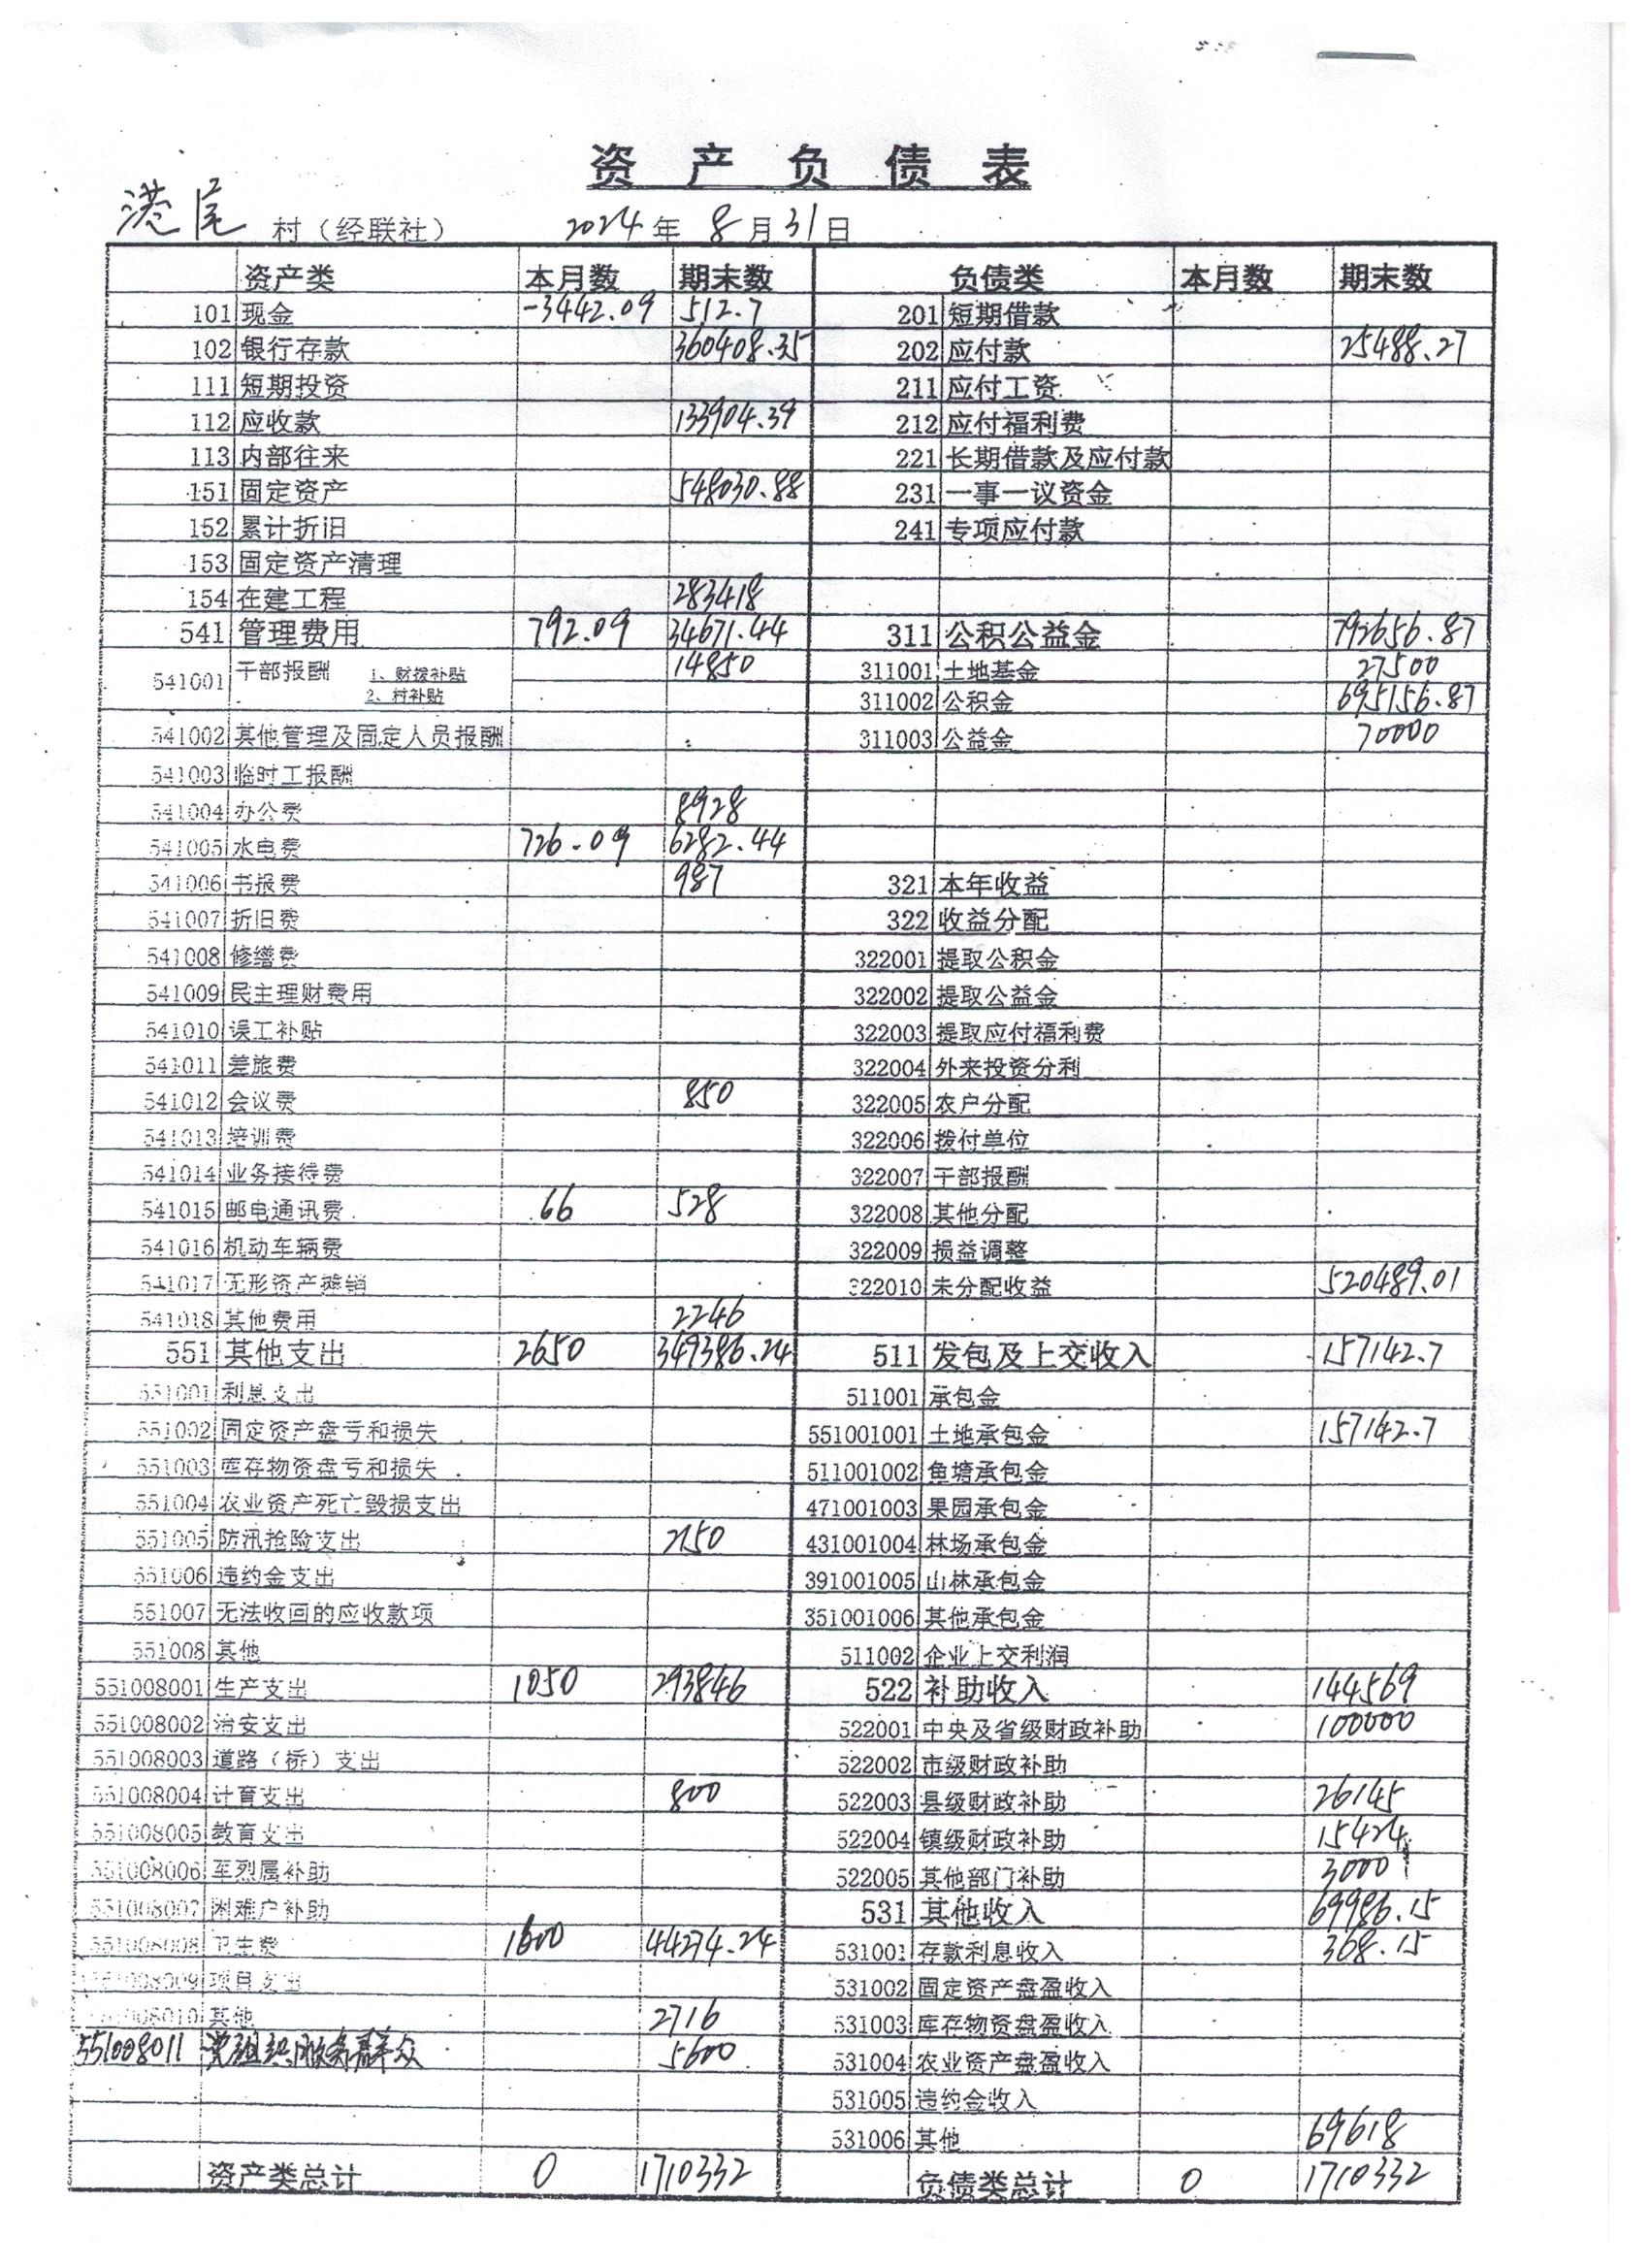 资产负债表
港尾 村（经联社） 2024 年 8 月 31 日
资产类 本月数 期末数 负债类 本月数 期末数
101 现金 -3442.09 512.7 201 短期借款
102 银行存款 360408.35 202 应付款 25488.27
111 短期投资 211 应付工资
112 应收款 133904.39 212 应付福利费
113 内部往来 221 长期借款及应付款
151 固定资产 548030.88 231 一事一议资金
152 累计折旧 241 专项应付款
153 固定资产清理
154 在建工程 283418
541 管理费用 792.09 34671.44 311 公积公益金 792656.87
541001 干部报酬 1、财拨补贴 14850 311001 土地基金 27500
2、村补贴 311002 公积金 695156.87
541002 其他管理及固定人员报酬 311003 公益金 70000
541003 临时工报酬
541004 办公费 8928
541005 水电费 726.09 6282.44
541006 书报费 987 321 本年收益
541007 折旧费 322 收益分配
541008 修缮费 322001 提取公积金
541009 民主理财费用 322002 提取公益金
541010 误工补贴 322003 提取应付福利费
541011 差旅费 322004 外来投资分利
541012 会议费 850 322005 农户分配
541013 培训费 322006 拨付单位
541014 业务接待费 322007 干部报酬
541015 邮电通讯费 66 528 322008 其他分配
541016 机动车辆费 322009 损益调整
541017 无形资产摊销 322010 未分配收益 520489.01
541018 其他费用 2246
551 其他支出 2650 349386.24 511 发包及上交收入 157142.7
551001 利息支出 511001 承包金
551002 固定资产盘亏和损失 551001001 土地承包金 157142.7
551003 库存物资盘亏和损失 511001002 鱼塘承包金
551004 农业资产死亡毁损支出 471001003 果园承包金
551005 防汛抢险支出 2150 431001004 林场承包金
551006 违约金支出 391001005 山林承包金
551007 无法收回的应收款项 351001006 其他承包金
551008 其他 511002 企业上交利润
551008001 生产支出 1050 293846 522 补助收入 144569
551008002 治安支出 522001 中央及省级财政补助 100000
551008003 道路（桥）支出 522002 市级财政补助
551008004 计育支出 800 522003 县级财政补助 26145
551008005 教育支出 522004 镇级财政补助 15424
551008006 军烈属补助 522005 其他部门补助 3000
551008007 困难户补助 531 其他收入 69986.15
551008008 卫生费 1600 44274.24 531001 存款利息收入 368.15
551008009 项目支出 531002 固定资产盘盈收入
551008010 其他 2716 531003 库存物资盘盈收入
551008011 党组织服务群众 5600 531004 农业资产盘盈收入
531005 违约金收入
531006 其他 69618
资产类总计 0 1710332 负债类总计 0 1710332